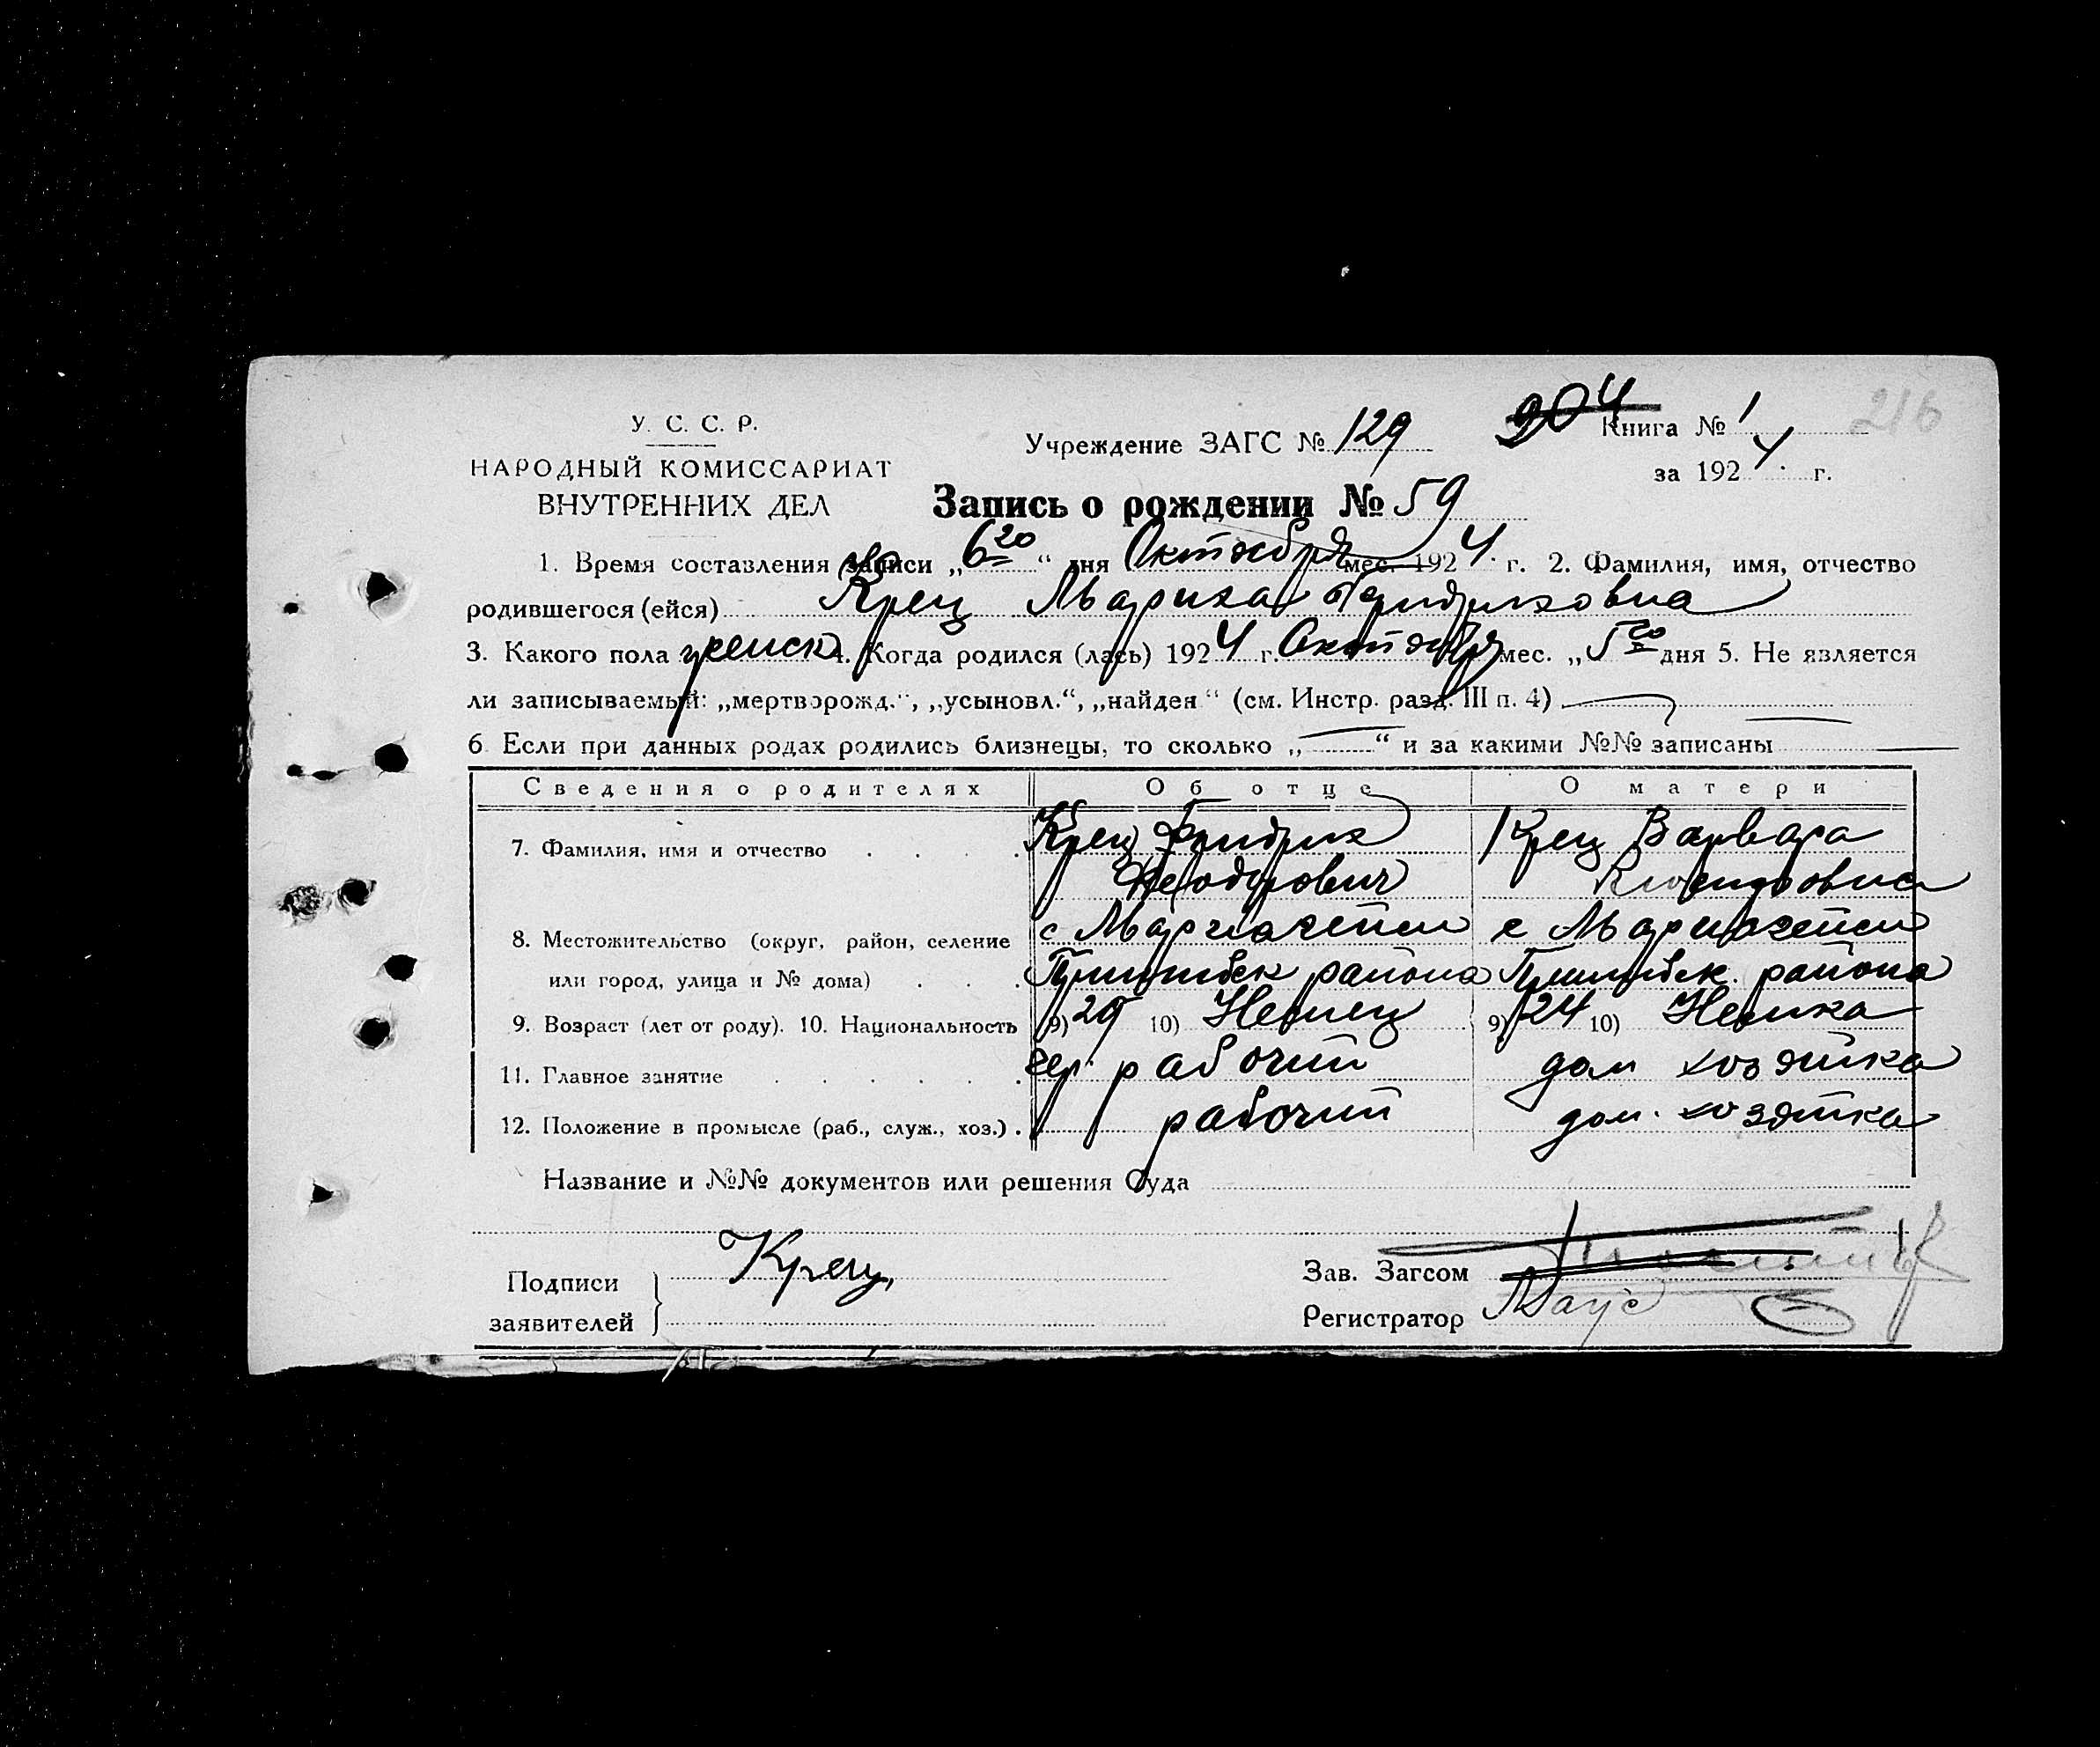 204 216
У. С. С. Р.
НАРОДНЫЙ КОМИССАРИАТ
ВНУТРЕННИХ ДЕЛ
Учреждение ЗАГС № 129 Книга № 1
за 1924 г.
Запись о рождении № 59
1. Время составления записи „6го“ дня Октября мес. 1924 г. 2. Фамилия, имя, отчество
родившегося (ейся) Крец Мариха Фридриховна
3. Какого пола женск 4. Когда родился (лась) 1924 г. Октября мес. „5го дня 5. Не является
ли записываемый: „мертворожд.“, „усыновл.“, „найден“ (см. Инстр. разд. III п. 4)
6. Если при данных родах родились близнецы, то сколько „ “ и за какими №№ записаны
Сведения о родителях Об отце О матери
7. Фамилия, имя и отчество Крец Фридрих Крец Варвара
Феодорович
8. Местожительство (округ, район, селение с Мариагейм с Мариагейм
или город, улица и № дома) Пришибск района Пришибск. района
9. Возраст (лет от роду). 10. Национальность 9) 10) Немец 9) 24 10) Немка
11. Главное занятие чер. рабочий дом хозяйка
12. Положение в промысле (раб., служ., хоз.) рабочий дом. хозяйка
Название и №№ документов или решения Суда
Подписи
заявителей Крец
Зав. Загсом
Регистратор